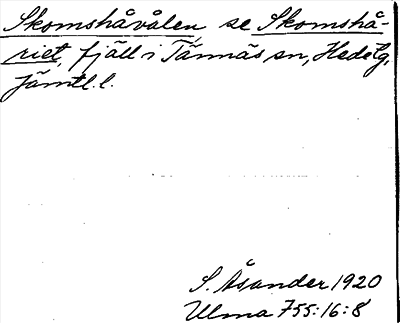 Skomshåvålen se Skomshå-
riet, fjäll i Tännäs sn, Hede tg,
Jämtl. l.
S. Åsander 1920
Ulma 755:16:8